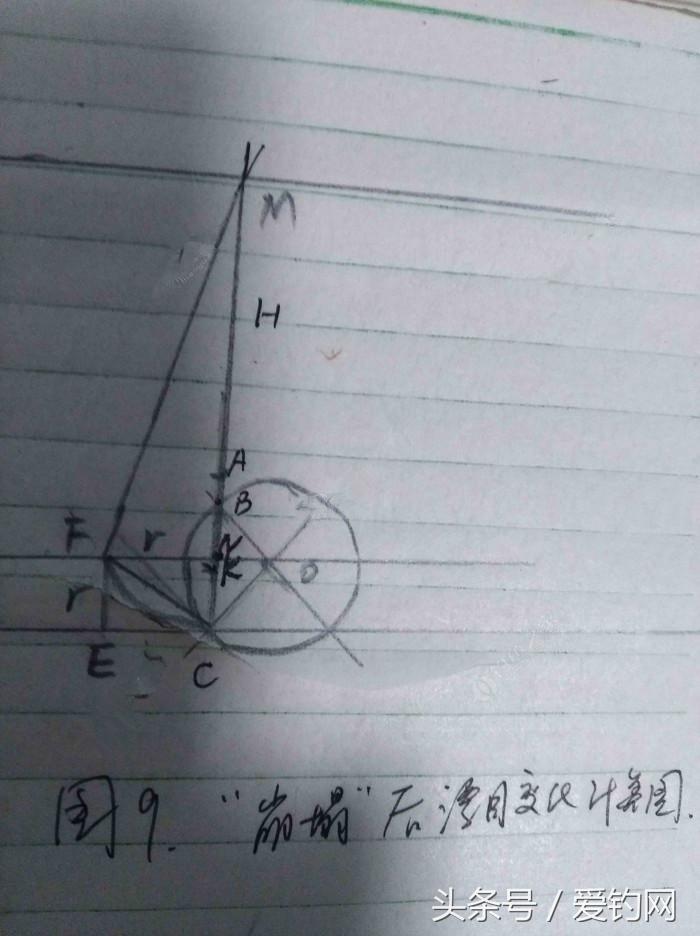 M
H
A
B
F r K O
r
E
C
图9. "崩塌"后漂目变化计算图.
头条号 / 爱钓网